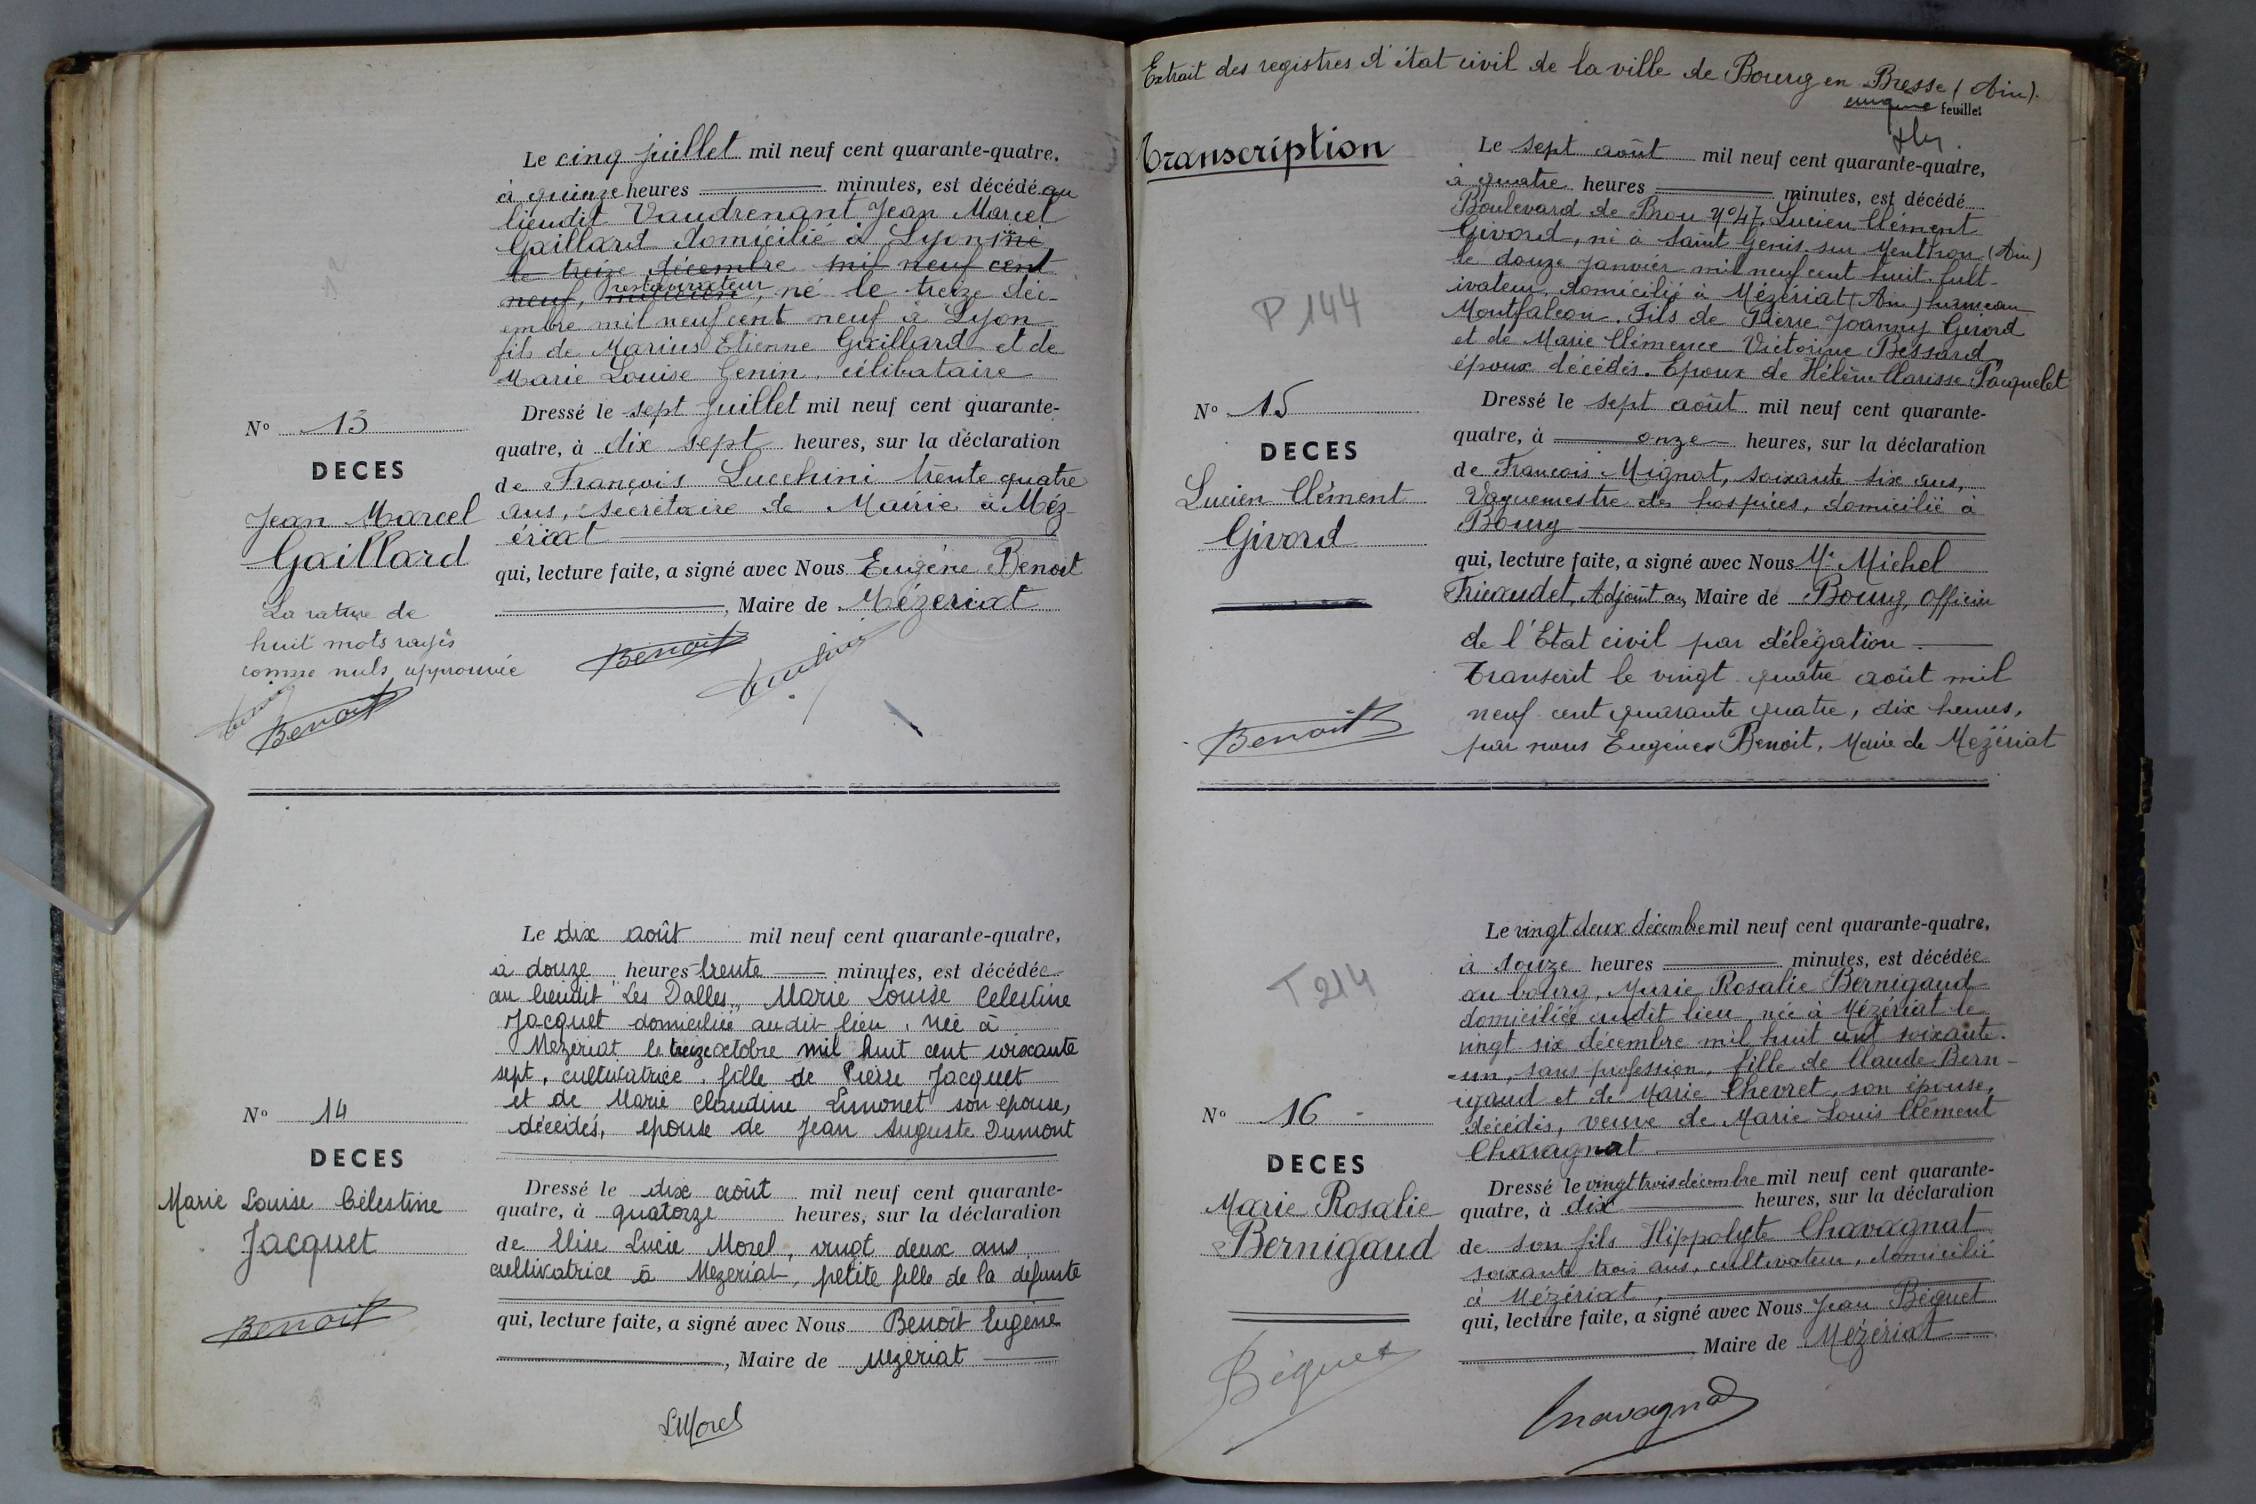 Le cinq juillet mil neuf cent quarante-quatre,
à quinze heures minutes, est décédé au
lieudit Vaudrenant Jean Marcel
Gaillard domicilié à Lyon né
le treize décembre mil neuf cent
neuf, restaurateur, né le treize déc-
embre mil neuf cent neuf à Lyon
fils de Marius Etienne Gaillard et de
Marie Louise Genin, célibataire
N° 13
DECES
Jean Marcel
Gaillard
La rature de
huit mots rayés
comme nuls approuvée
Benoit
Dressé le sept juillet mil neuf cent quarante-
quatre, à dix sept heures, sur la déclaration
de François Lucchini trente quatre
ans, secrétaire de Mairie à Méz-
ériat
qui, lecture faite, a signé avec Nous Eugène Benoit
, Maire de Mézeriat
Benoit
Le dix août mil neuf cent quarante-quatre,
à douze heures trente minutes, est décédée
au lieudit "Les Dalles", Marie Louise Celestine
Jacquet domiciliée audit lieu, née à
Mézériat le treize octobre mil huit cent soixante
sept, cultivatrice, fille de Pierre Jacquet
et de Marie Claudine Limonet son épouse,
décédés, épouse de Jean Auguste Dumont
N° 14
DECES
Marie Louise Célestine
Jacquet
Benoit
Dressé le dix août mil neuf cent quarante-
quatre, à quatorze heures, sur la déclaration
de Elise Lucie Morel, vingt deux ans
cultivatrice à Mezeriat, petite fille de la défunte
qui, lecture faite, a signé avec Nous Benoit Eugène
, Maire de Mezeriat
LMorel
Extrait des registres d'état civil de la ville de Bourg en Bresse (Ain).
feuillet
Transcription
P 144
Le sept août mil neuf cent quarante-quatre,
à quatre heures minutes, est décédé
Boulevard de Brou N°47, Lucien Clément
Givord, né à Saint Genis sur Menthon (Ain)
le douze janvier mil neuf cent huit. Cult-
ivateur, domicilié à Mézériat (Ain) hameau
Montfalcon. Fils de Pierre Joanny Givord
et de Marie Clémence Victorine Bessard,
époux décédés. Epoux de Hélène Clarisse Pacquelet
N° 15
DECES
Lucien Clément
Givord
Benoit
Dressé le sept août mil neuf cent quarante-
quatre, à onze heures, sur la déclaration
de François Mignot, soixante six ans,
Vaguemestre des hospices, domicilié à
Bourg
qui, lecture faite, a signé avec Nous Mr Michel
Fricaudet, Adjoint au Maire de Bourg, Officier
de l'Etat civil par délégation.
Transcrit le vingt quatre août mil
neuf cent quarante quatre, dix heures,
par nous Eugène Benoit, Maire de Mezériat
T 214
Le vingt deux décembre mil neuf cent quarante-quatre,
à douze heures minutes, est décédée
au bourg, Marie Rosalie Bernigaud
domiciliée audit lieu, née à Mézériat le
vingt six décembre mil huit cent soixante.
un, sans profession, fille de Claude Bern-
igaud et de Marie Chevret, son épouse,
décédés, veuve de Marie Louis Clément
Chavagnat
N° 16
DECES
Marie Rosalie
Bernigaud
Béguet
Dressé le vingt trois décembre mil neuf cent quarante-
quatre, à dix heures, sur la déclaration
de son fils Hippolyte Chavagnat
soixante trois ans, cultivateur, domicilié
à Mézériat,
qui, lecture faite, a signé avec Nous Jean Béguet
Maire de Mézériat
Chavagnat